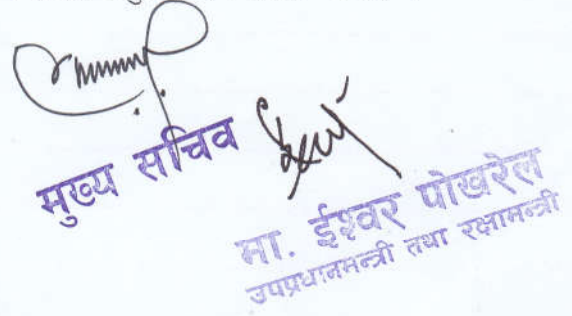 मुख्य सचिव
मा. ईश्वर पोखरेल
उपप्रधानमन्त्री तथा रक्षामन्त्री